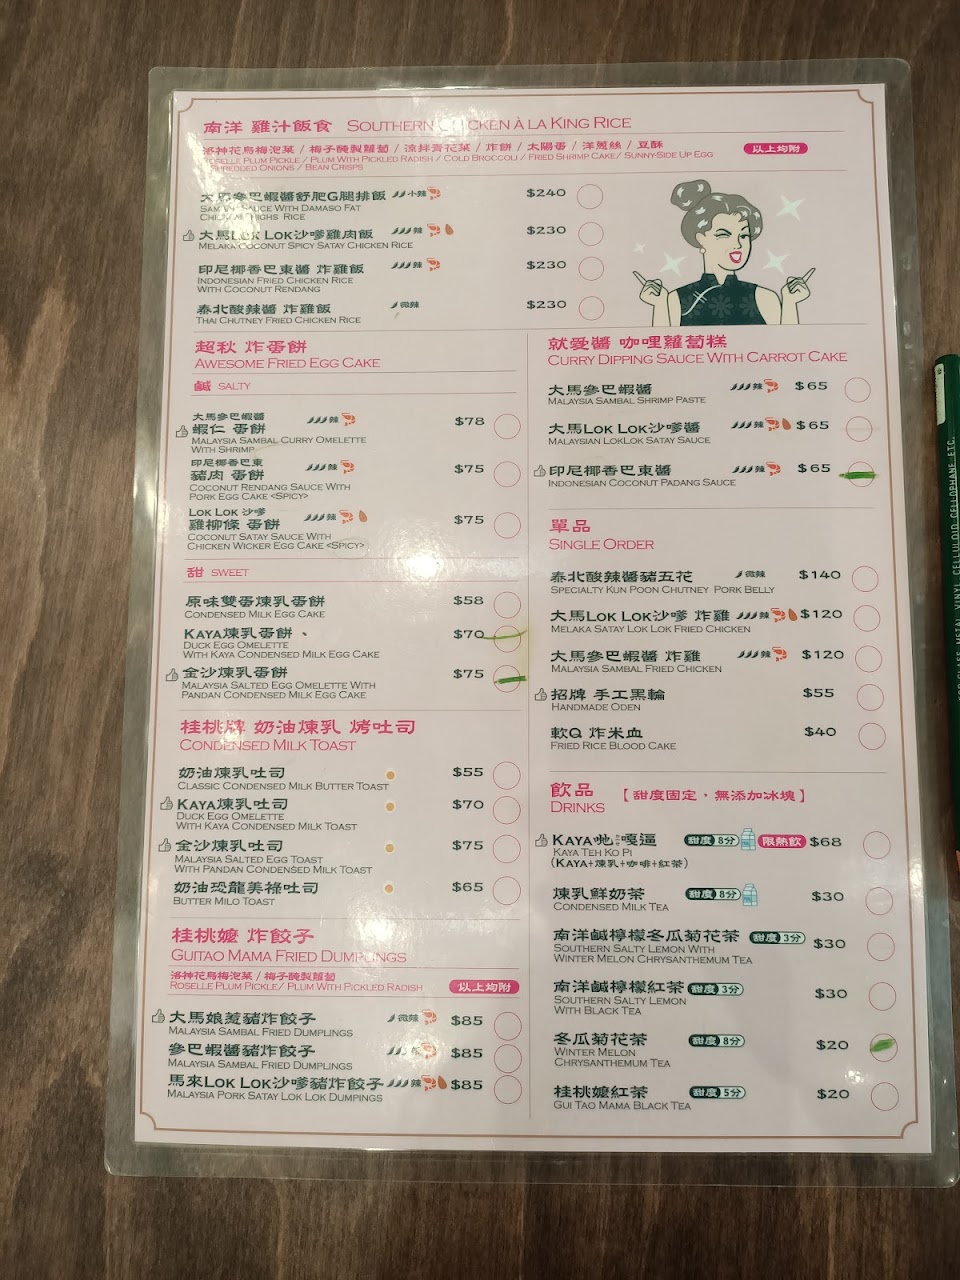 南洋 雞汁飯食 SOUTHERN CHICKEN À LA KING RICE
洛神花烏梅泡菜 / 梅子醃製蘿蔔 / 涼拌青花菜 / 炸餅 / 太陽蛋 / 洋蔥絲 / 豆酥 以上均附
ROSELLE PLUM PICKLE / PLUM WITH PICKLED RADISH / COLD BROCCOLI / FRIED SHRIMP CAKE/ SUNNY-SIDE UP EGG
SHREDDED ONIONS / BEAN CRISPS
大馬參巴蝦醬舒肥G腿排飯 小辣 $240
SAMBAL SAUCE WITH DAMASO FAT
CHICKEN THIGHS RICE
大馬LOK LOK沙嗲雞肉飯 辣 $230
MELAKA COCONUT SPICY SATAY CHICKEN RICE
印尼椰香巴東醬 炸雞飯 辣 $230
INDONESIAN FRIED CHICKEN RICE
WITH COCONUT RENDANG
泰北酸辣醬 炸雞飯 微辣 $230
THAI CHUTNEY FRIED CHICKEN RICE
超秋 炸蛋餅
AWESOME FRIED EGG CAKE
鹹 SALTY
大馬參巴蝦醬 辣
蝦仁 蛋餅 $78
MALAYSIA SAMBAL CURRY OMELETTE
WITH SHRIMP
印尼椰香巴東 辣
豬肉 蛋餅 $75
COCONUT RENDANG SAUCE WITH
PORK EGG CAKE <SPICY>
LOK LOK 沙嗲 辣
雞柳條 蛋餅 $75
COCONUT SATAY SAUCE WITH
CHICKEN WICKER EGG CAKE <SPICY>
甜 SWEET
原味雙蛋煉乳蛋餅 $58
CONDENSED MILK EGG CAKE
KAYA煉乳蛋餅、 $70
DUCK EGG OMELETTE
WITH KAYA CONDENSED MILK EGG CAKE
金沙煉乳蛋餅 $75
MALAYSIA SALTED EGG OMELETTE WITH
PANDAN CONDENSED MILK EGG CAKE
桂桃牌 奶油煉乳 烤吐司
CONDENSED MILK TOAST
奶油煉乳吐司 $55
CLASSIC CONDENSED MILK BUTTER TOAST
KAYA煉乳吐司 $70
DUCK EGG OMELETTE
WITH KAYA CONDENSED MILK TOAST
金沙煉乳吐司 $75
MALAYSIA SALTED EGG TOAST
WITH PANDAN CONDENSED MILK TOAST
奶油恐龍美祿吐司 $65
BUTTER MILO TOAST
桂桃嬤 炸餃子
GUITAO MAMA FRIED DUMPLINGS
洛神花烏梅泡菜 / 梅子醃製蘿蔔
ROSELLE PLUM PICKLE/ PLUM WITH PICKLED RADISH 以上均附
大馬娘惹豬炸餃子 微辣 $85
MALAYSIA SAMBAL FRIED DUMPLINGS
參巴蝦醬豬炸餃子 $85
MALAYSIA SAMBAL FRIED DUMPLINGS
馬來LOK LOK沙嗲豬炸餃子 辣 $85
MALAYSIA PORK SATAY LOK LOK DUMPINGS
就愛醬 咖哩蘿蔔糕
CURRY DIPPING SAUCE WITH CARROT CAKE
大馬參巴蝦醬 辣 $65
MALAYSIA SAMBAL SHRIMP PASTE
大馬LOK LOK沙嗲醬 辣 $65
MALAYSIAN LOKLOK SATAY SAUCE
印尼椰香巴東醬 辣 $65
INDONESIAN COCONUT PADANG SAUCE
單品
SINGLE ORDER
泰北酸辣醬豬五花 微辣 $140
SPECIALTY KUN POON CHUTNEY PORK BELLY
大馬LOK LOK沙嗲 炸雞 辣 $120
MELAKA SATAY LOK LOK FRIED CHICKEN
大馬參巴蝦醬 炸雞 辣 $120
MALAYSIA SAMBAL FRIED CHICKEN
招牌 手工黑輪 $55
HANDMADE ODEN
軟Q 炸米血 $40
FRIED RICE BLOOD CAKE
飲品 【甜度固定、無添加冰塊】
DRINKS
KAYA吔 嘎逼 甜度 8分 限熱飲 $68
KAYA TEH KO PI
(KAYA+煉乳+咖啡+紅茶)
煉乳鮮奶茶 甜度 8分 $30
CONDENSED MILK TEA
南洋鹹檸檬冬瓜菊花茶 甜度 3分 $30
SOUTHERN SALTY LEMON WITH
WINTER MELON CHRYSANTHEMUM TEA
南洋鹹檸檬紅茶 甜度 3分 $30
SOUTHERN SALTY LEMON
WITH BLACK TEA
冬瓜菊花茶 甜度 8分 $20
WINTER MELON
CHRYSANTHEMUM TEA
桂桃嬤紅茶 甜度 5分 $20
GUI TAO MAMA BLACK TEA
METAL, VINYL, CELLULOID, CELLOPHANE, ETC.